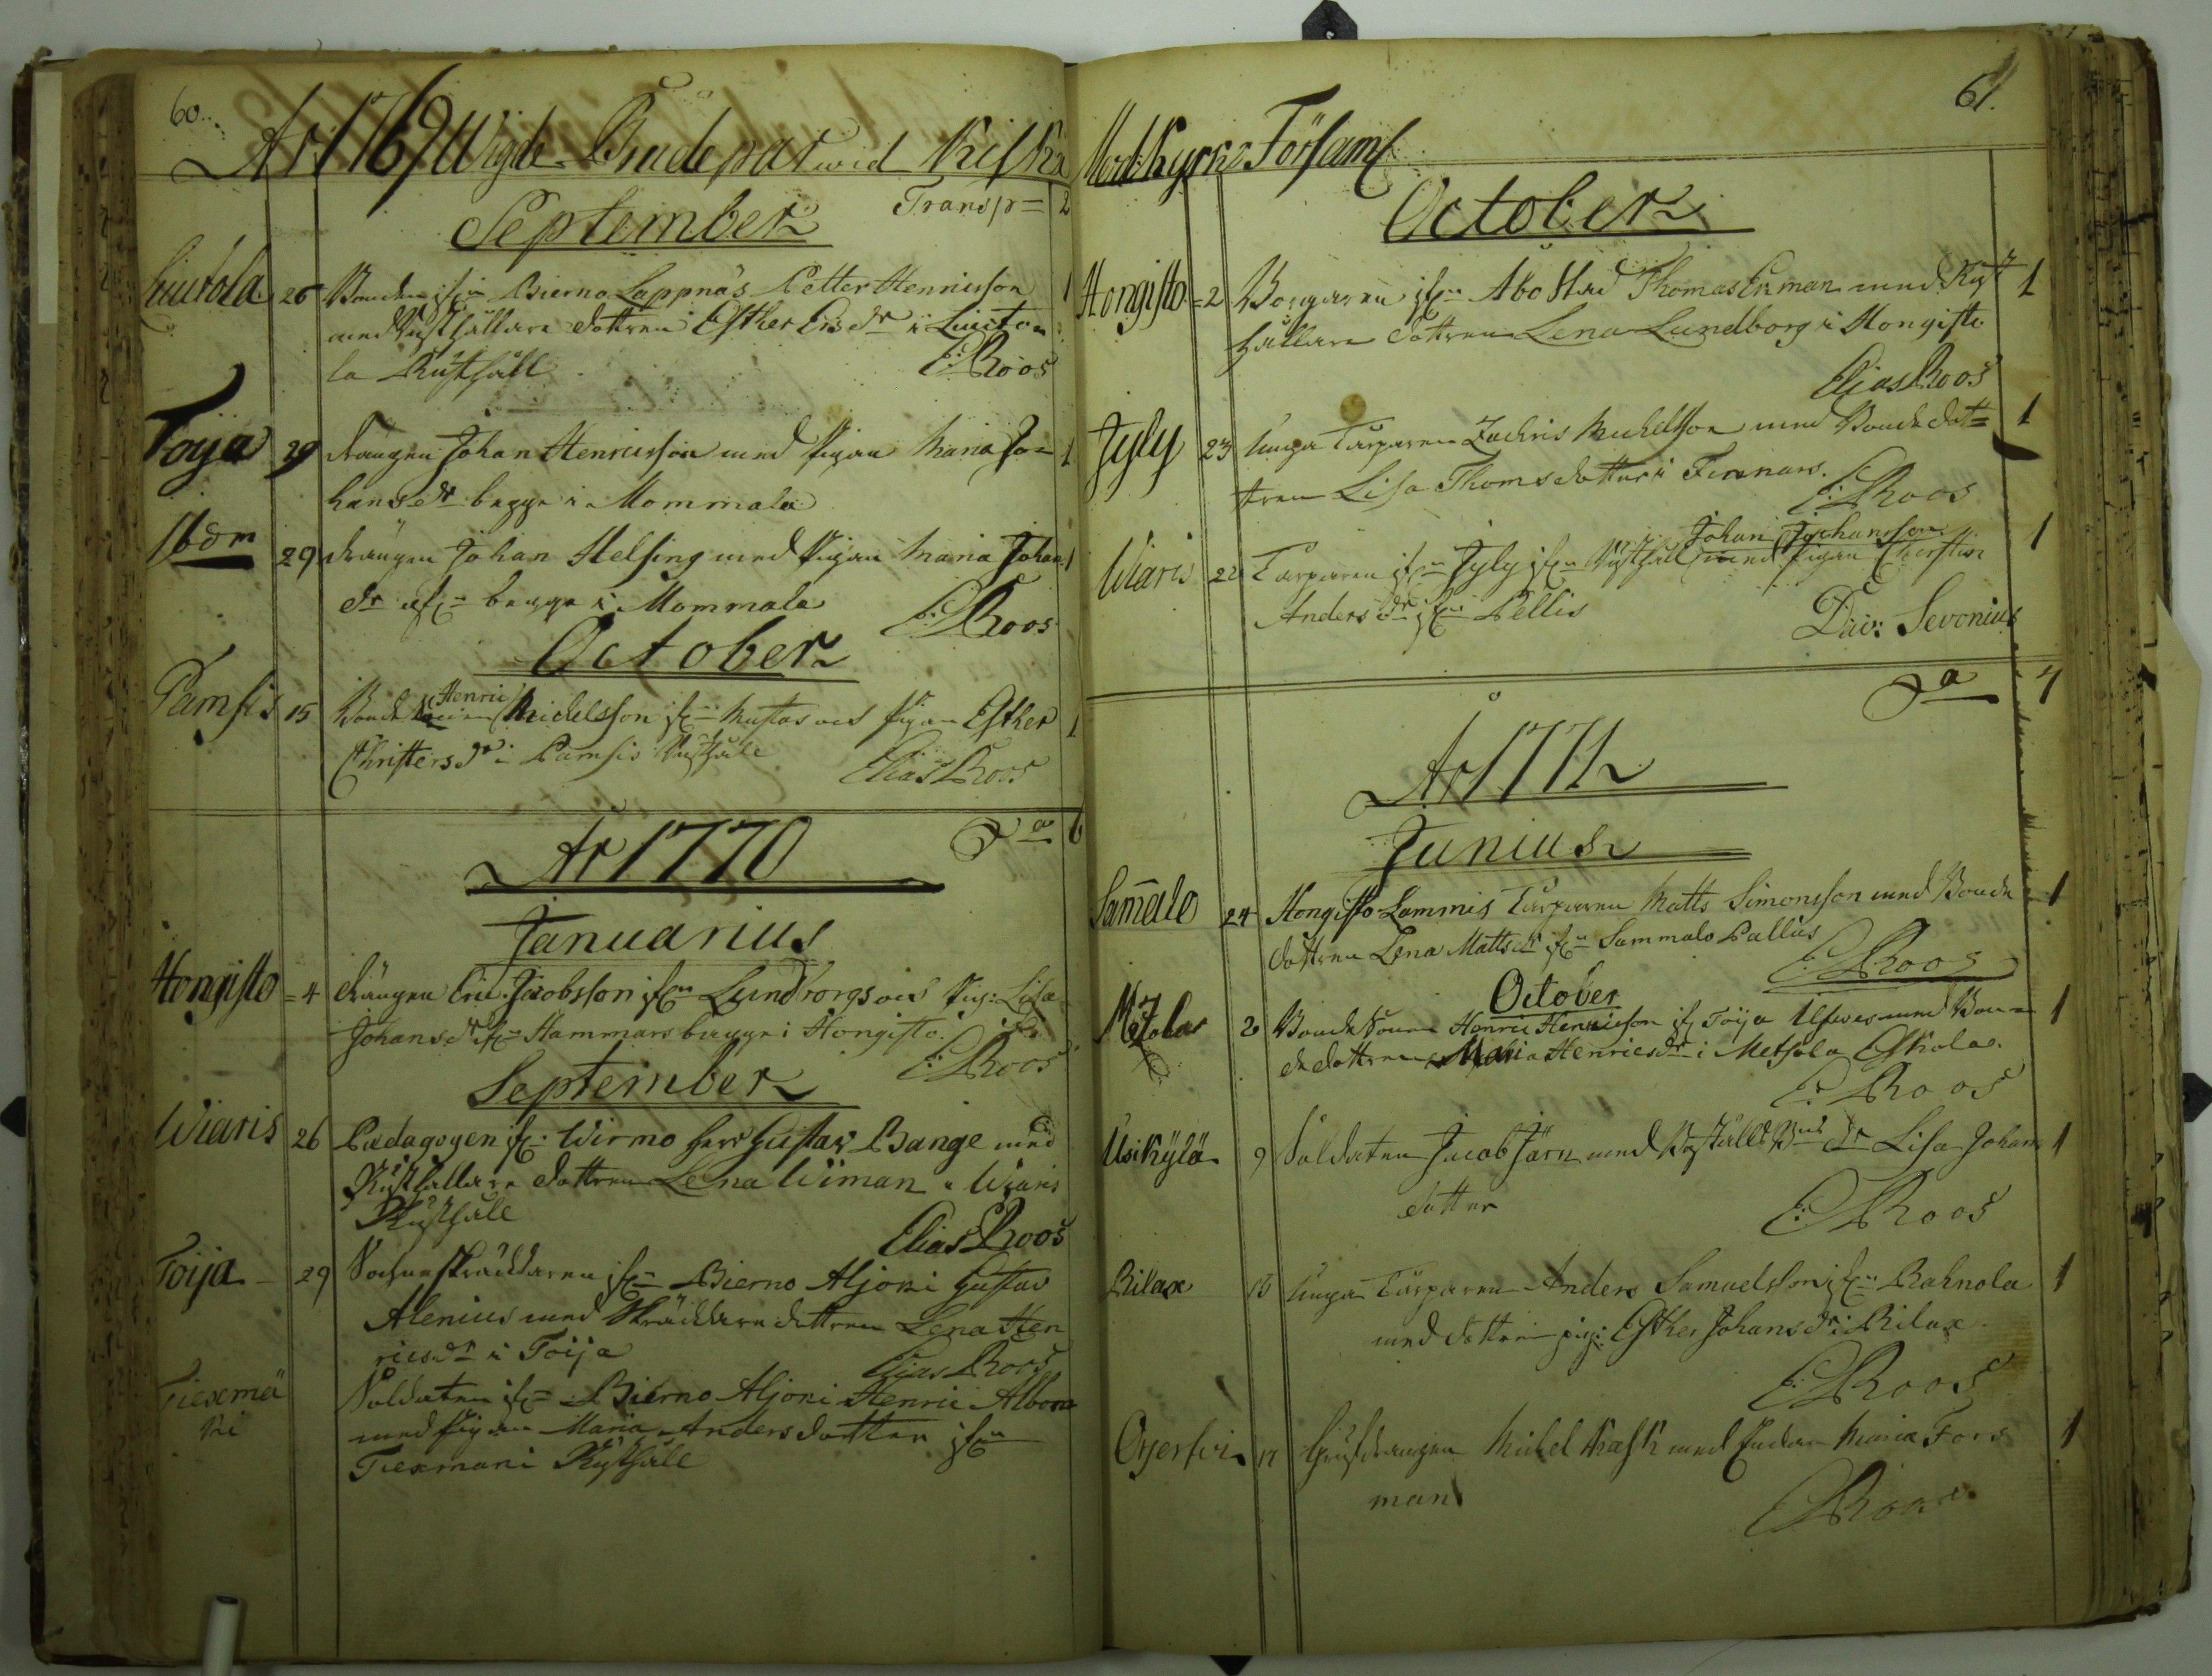 60.
År 1769 Wigde Brudepar wid Kisko
Transp= 2
September
Liutola 26 Bonden ifrån Bierno Lappnäs Petter Henricsson 1
med Rusthållare dottren Esther Ersdr i Liuto=
la Rusthåll E: Roos
Toija 29 drängen Johan Henricsson med Pigan Maria Jo= 1
hansdr begge i Mommala
Ibdm 29 drängen Johan Helsing med Pigan Maria Johans 1
dr ifrån begge i Mommala E: Roos
October
Pamsis 15 Bonde Henric Michelsson ifrån och Pigan Esther 1
Christersdr i Pamsis Rusthåll Elias Roos
Sa 6
År 1770
Januarius
Hongisto =4 drängen Eric Jacobsson ifrån Lundborgs och Pig: Lisa
Johansdr ifrån Hammars begge i Hongisto. E: Roos
September
Wiaris 26 Pædagogen ifr: Wirmo herr Gustav Bange med
Rusthållare dottren Lena Wiman i Wiaris
Rusthåll Elias Roos
Toija 29 Sochneskräddaren ifrån Bierno Aljoki Gustav
Alenius med Skräddare dottren Lena Hen
ricsdr i Toija Elias Roos
Tiexmä
ki Soldaten ifrån Bierno Aljoki Henric Albom
med pigan Maria Andersdotter ifrån
Tiexmäki Rusthåll
61.
Moderkyrko Församl
October
Hongisto =2 Borgaren ifrån Åbo Stad Thomas Ekman med Rust 1
hållare dottren Lena Lundborg i Hongisto
Elias Roos
Jyly 23 Unga Torparen Zachris Michelsson med Bonde dot= 1
tren Lisa Thomsdotter i Finnars. E: Roos
Johan Johansson
Wiaris 22 Torparen ifrån Jyly ifrån Rusthåll med pigan Cherstin 1
Andersdr ifrån Pellis Dav: Sevonius
Sa 4
År 1771
Junius
Sam̅alo 24 Hongisto Lammis Torparen Matts Simonsson med Bonde 1
dottren Lena Mattsdr ifrån Sammalo Pallus
E: Roos
October
Metsola 20 Bonde Sonen Henric Henricsson ifr Toija med Bon= 1
de dottren Maria Henricsdr i Metsola Eskola.
E: Roos
Usikylä 9 Soldaten Jacob Järn med dr Lisa Johans 1
dotter
E: Roos
Bilax 13 Unga Torparen Anders Samuelsson ifrån Bahnola 1
med dottren pig: Esther Johansdr i Bilax.
E: Roos
Orjerfwi 17 Grufdrängen Michel Kask med Enkan Maria Fors 1
man
E Roos